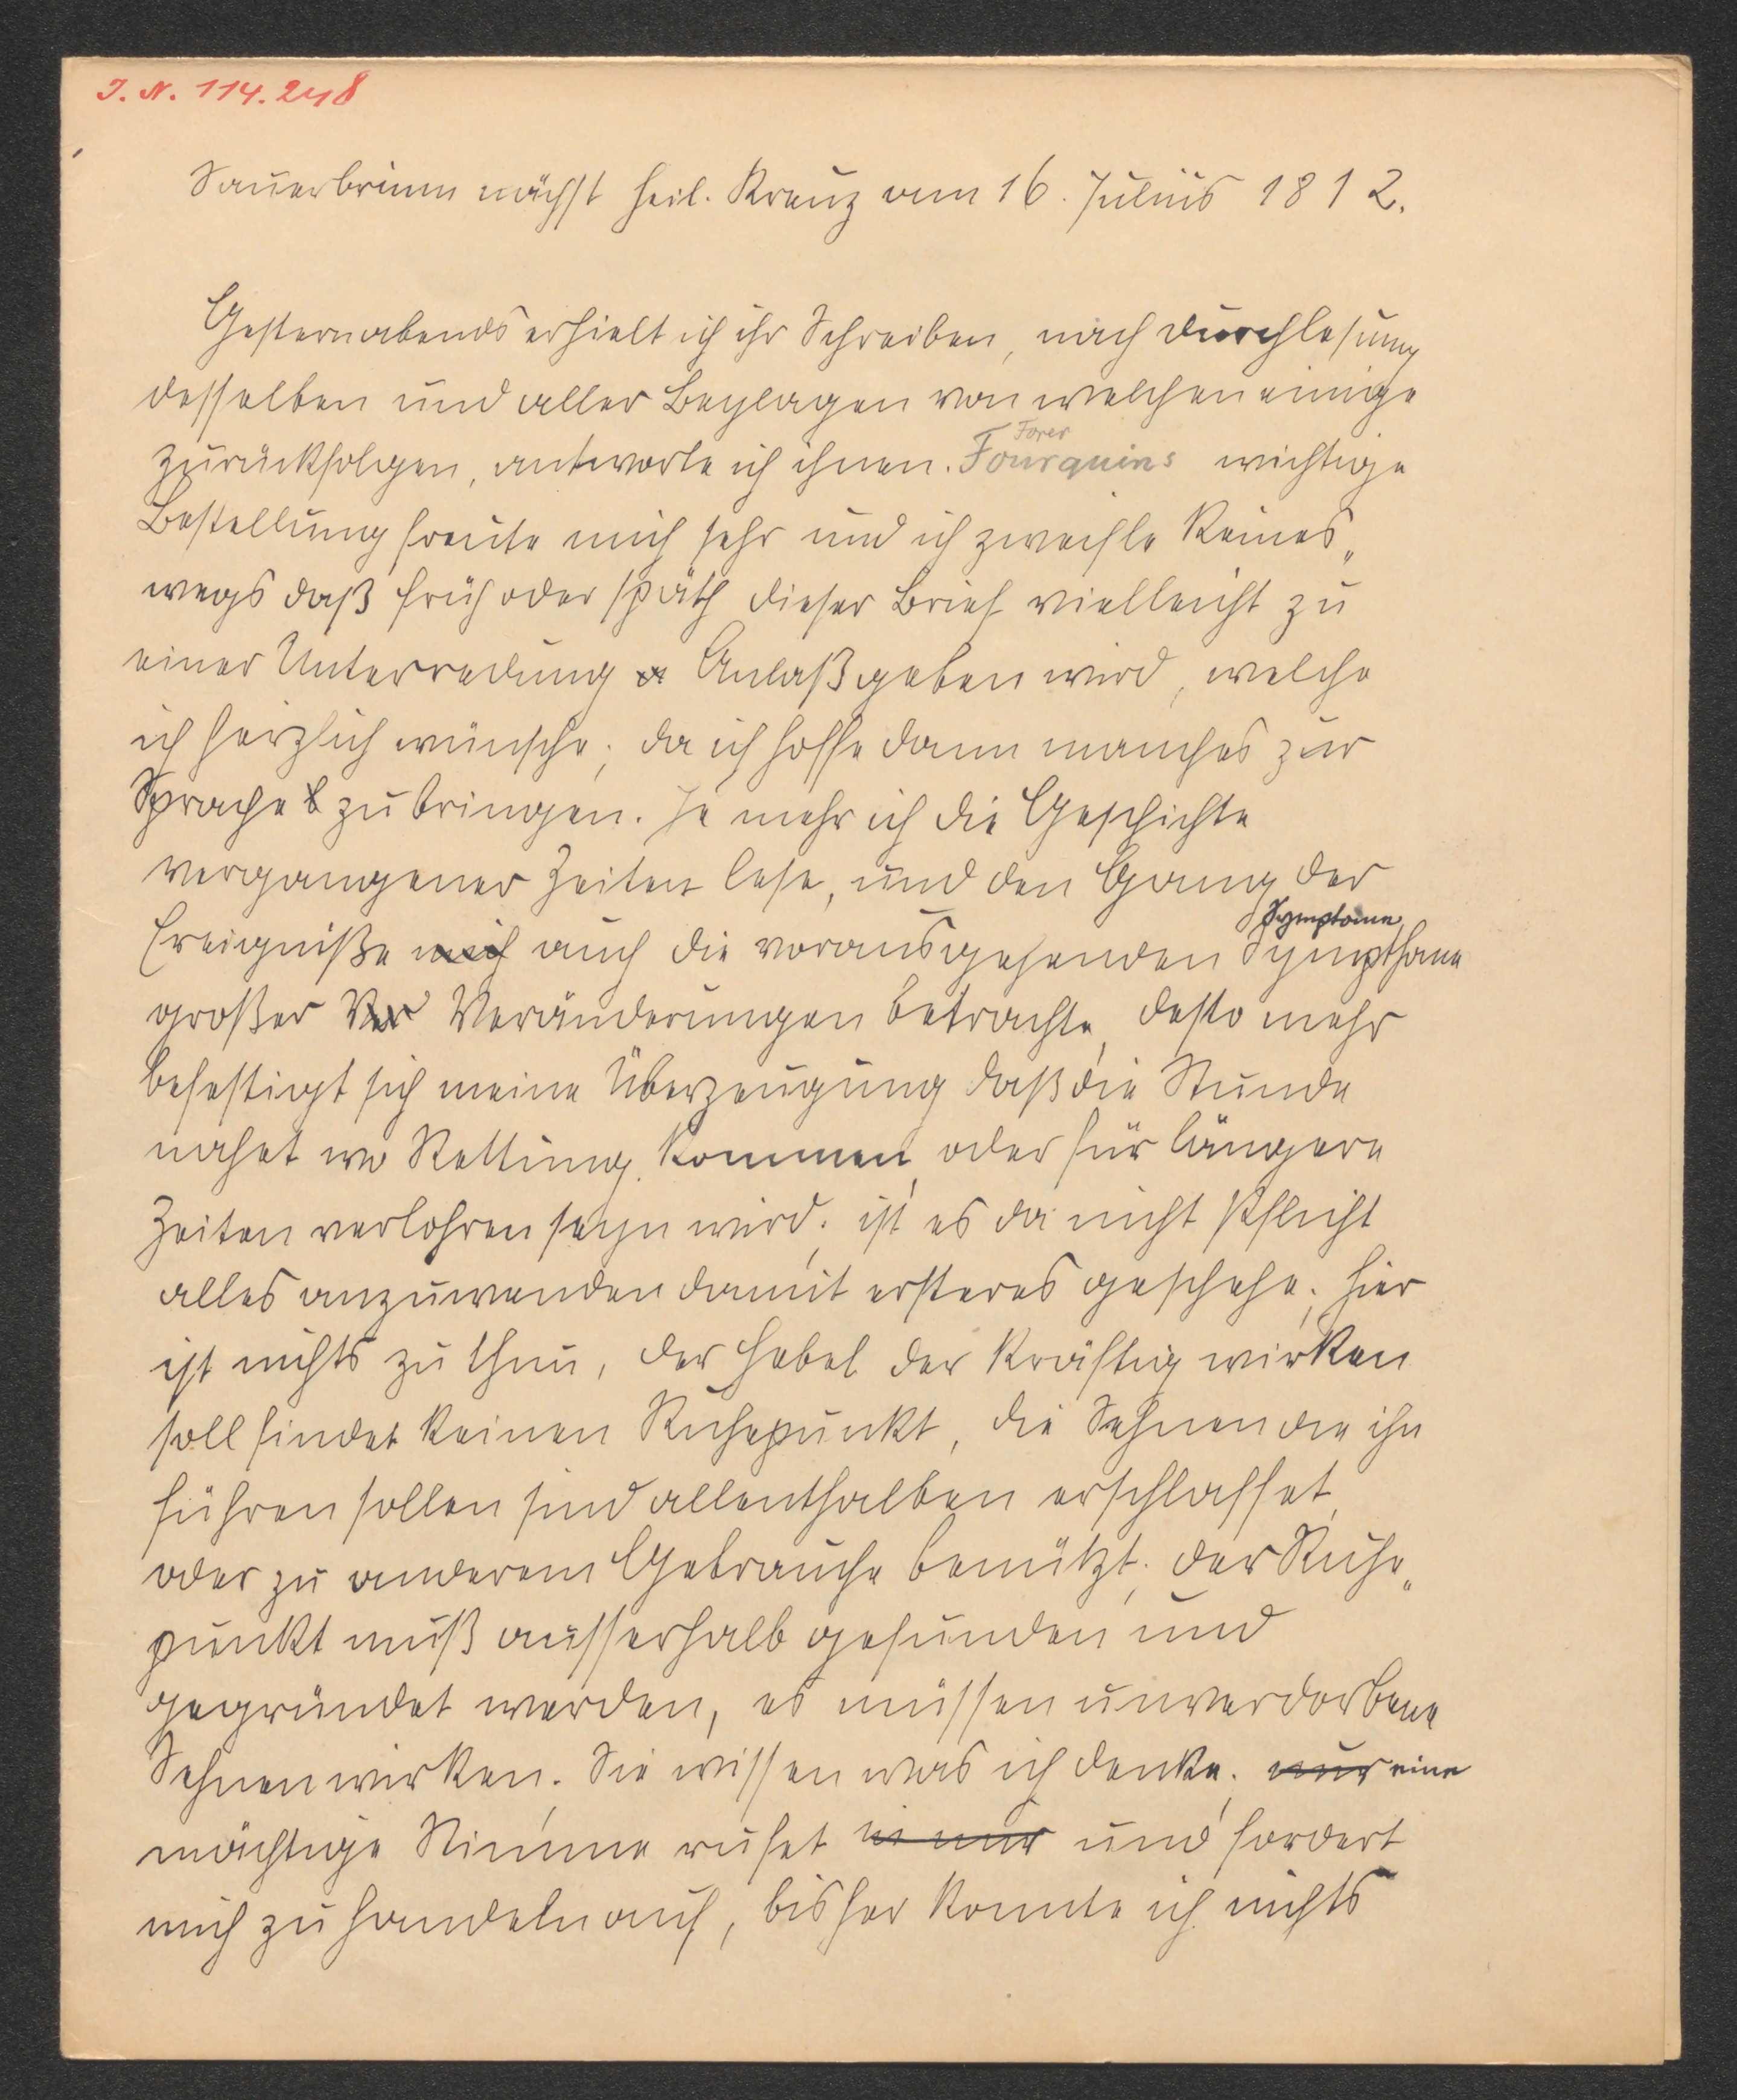 J. N. 114.248
Sauerbrunn nächst heil. Kreuz am 16. Julius 1812.
Gestern abends erhielt ich ihr Schreiben, nach Durchlesung
desselben und aller Beylagen von welchen einige
Forer
zurückfolgen, antworte ich ihnen. Fourquins wichtige
Bestellung freute mich sehr und ich zweifle keines„
wegs daß früh oder späth dieser Brief vielleicht zu
einer Unterredung a Anlaß geben wird, welche
ich herzlich wünsche, da ich hoffe dann manches zur
Sprache b zu bringen. Je mehr ich die Geschichte
vergangener Zeiten lese, und den Gang der
Symptome
Ereigniße mich auch die vorausgehenden Sympthome
großer Ver Veränderungen betrachte, desto mehr
befestigt sich meine Überzeugung daß die Stunde
nahet wo Rettung kommen, oder für längere
Zeiten verlohren seyn wird; ist es da nicht Pflicht
alles anzuwenden damit ersteres geschehe; hier
ist nichts zu thun, der Hebel der kräftig wirken
soll findet keinen Ruhepunkt, die Sehnen die ihn
führen sollen sind allenthalben erschlaffet,
oder zu anderem Gebrauche benützt; der Ruhe„
punkt muß ausserhalb gefunden und
gegründet werden, es müssen unverdorbene
Sehnen wirken. Sie wissen was ich denke; nur eine
mächtige Stimme rufet in mir und fordert
mich zu handeln auf, bisher konnte ich nichts